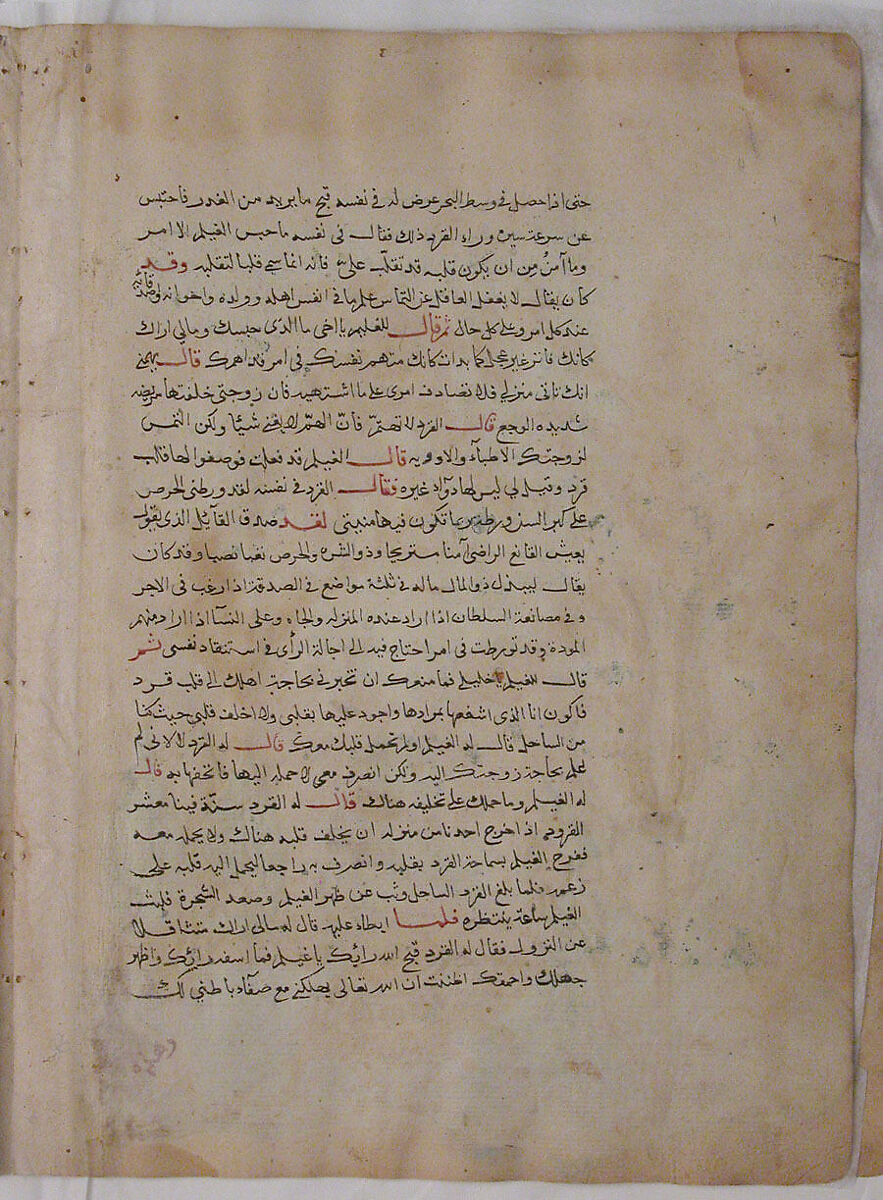 حتى اذا حصل في وسط البحر عرض له في نفسه قبح ما يريد من الغدر فاحتبس
عن سرعة سيره وراء القرد ذلك فقال في نفسه ما حبس الغيلم الا امر
وما آمنُ من ان يكون قلبه قد تقلّب عليّ فانه انما سمي قلبا لتقلبه وقد
كان يقال لا يغفل العاقل عن التماس علم ما في انفس اهله وولده واخوانه
عند كل امر وعلى كل حال ثم قال للغليم يا اخى ما الذى حبسك ومالي اراك
كانك فاتر غير عجل كما بدات كانك متهم نفسك في امر قد اهمك قال يهمني
انك تاتي منزلي فلا تصادف امرى على ما اشتهيه فان زوجتي خلفتها مريضه
شديده الوجع قال القرد لا تهتمّ فانّ الهمّ لا يغني شيًا ولكن التمس
لزوجتك الاطبآء والادويه قال الغيلم قد فعلت فوصفوا لها قلب
قرد وقيل لي ليس لها دوآء غيره فقال القرد في نفسه لقد ورطني الحرص
على كبر السن ورطة ربما تكون فيها منيتي لقد صدق القآيل الذي يقول
يعيش القانع الراضي آمنا مستريحا وذو الشره والحرص تعبا نصبا وقد كان
يقال ليبذل ذو المال ماله في ثلثة مواضع في الصدقة اذا رغب في الاجر
وفي مصانعة السلطان اذا اراد عنده المنزله والجاه وعلى النسآ اذا اراد منهم
المودة وقد تورطت في امر احتاج فيه الى اجالة الرأى في استنقاد نفسى ثم
قال للغيلم يا خليلي فما منعك ان تخبرني بحاجة اهلك الى قلب قرد
فاكون انا الذى اشفعها بمرادها واجود عليها بقلبي ولا اخلف قلبي حيث كنا
من الساحل قال له الغيلم اولم تحمل قلبك معك قال له القرد لا لاني لم
اعلم بحاجة زوجتك اليه ولكن انصرف معي لاحمله اليها فاتحفها به قال
له الغيلم وما حملك على تخليفه هناك قال له القرد سنّة فينا معشر
القرود اذا خرج احدنا من منزله ان يخلف قلبه هناك ولا يحمله معه
ففرح الغيلم بسماحة القرد بقلبه وانصرف به راجعا ليحمل اليه قلبه على
زعمه فلما بلغ القرد الساحل وثب عن ظهر الغيلم وصعد الشجرة فلبث
الغيلم ساعة ينتظره فلما ابطاء عليه قال له مالي اراك متثاقلا
عن النزول فقال له القرد قبح الله رائيك يا غيلم فما اسفه رائيك واظهر
جهلك واحمقك اظننت ان الله تعالى يهلكني مع صفآء باطني لك